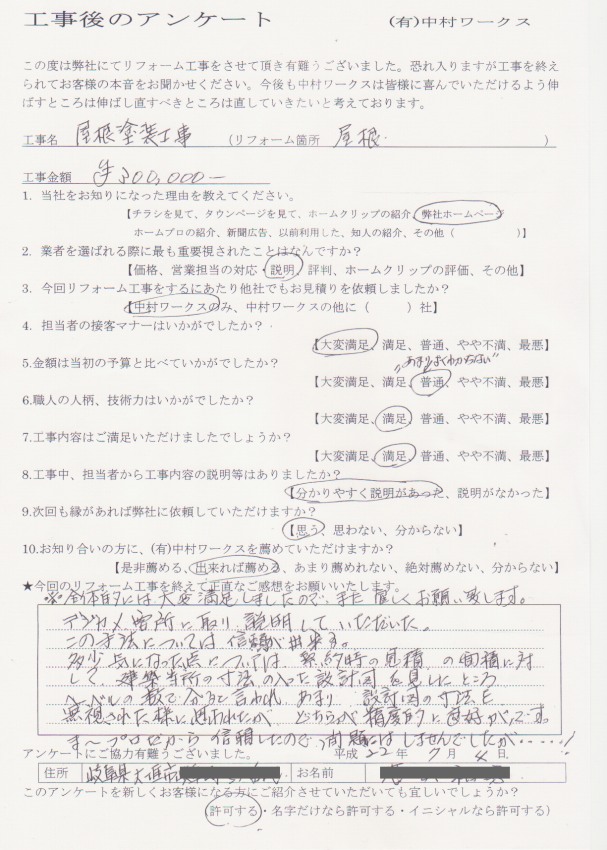 工事後のアンケート　(有)中村ワークス
この度は弊社にてリフォーム工事をさせて頂き有難うございました。恐れ入りますが工事を終え
られてお客様の本音をお聞かせください。今後も中村ワークスは皆様に喜んでいただけるよう伸
ばすところは伸ばし直すべきところは直していきたいと考えております。
工事名　屋根塗装工事　(リフォーム箇所　屋根　)
工事金額　¥300,000－
1. 当社をお知りになった理由を教えてください。
【チラシを見て、タウンページを見て、ホームクリップの紹介、弊社ホームページ
ホームプロの紹介、新聞広告、以前利用した、知人の紹介、その他（　）】
2. 業者を選ばれる際に最も重要視されたことはなんですか？
【価格、営業担当の対応・説明、評判、ホームクリップの評価、その他】
3. 今回リフォーム工事をするにあたり他社でもお見積りを依頼しましたか？
【中村ワークスのみ、中村ワークスの他に（　）社】
4. 担当者の接客マナーはいかがでしたか？
【大変満足、満足、普通、やや不満、最悪】
5.金額は当初の予算と比べていかがでしたか？
"あまりよくわからない"
【大変満足、満足、普通、やや不満、最悪】
6.職人の人柄、技術力はいかがでしたか？
【大変満足、満足、普通、やや不満、最悪】
7.工事内容はご満足いただけましたでしょうか？
【大変満足、満足、普通、やや不満、最悪】
8.工事中、担当者から工事内容の説明等はありましたか？
【分かりやすく説明があった、説明がなかった】
9.次回も縁があれば弊社に依頼していただけますか？
【思う、思わない、分からない】
10.お知り合いの方に、(有)中村ワークスを薦めていただけますか？
【是非薦める、出来れば薦める、あまり薦められない、絶対薦めない、分からない】
★今回のリフォーム工事を終えて正直なご感想をお願いいたします。
※全体的には大変満足しましたので、また宜しくお願い致します。
デジカメ 箇所に取り、説明していただいた。
この手法については信頼が出来る。
多少気になった点については、契約時の見積の面積に対
して、建築当所の寸法の入った設計図を見したところ
ヘーベルの数で分ると言われ、あまり 設計図の寸法を
無視された様に思われたが、どちらが精度的に 良好か?です。
ま～プロだから 信頼したので、問題にはしませんでしたが・・・・・!!
アンケートにご協力有難うございました。　平成 22 年 7 月 4 日
住所　岐阜県大垣市　お名前
このアンケートを新しくお客様になる方にご紹介させていただいても宜しいでしょうか？
(許可する・名字だけなら許可する・イニシャルなら許可する)